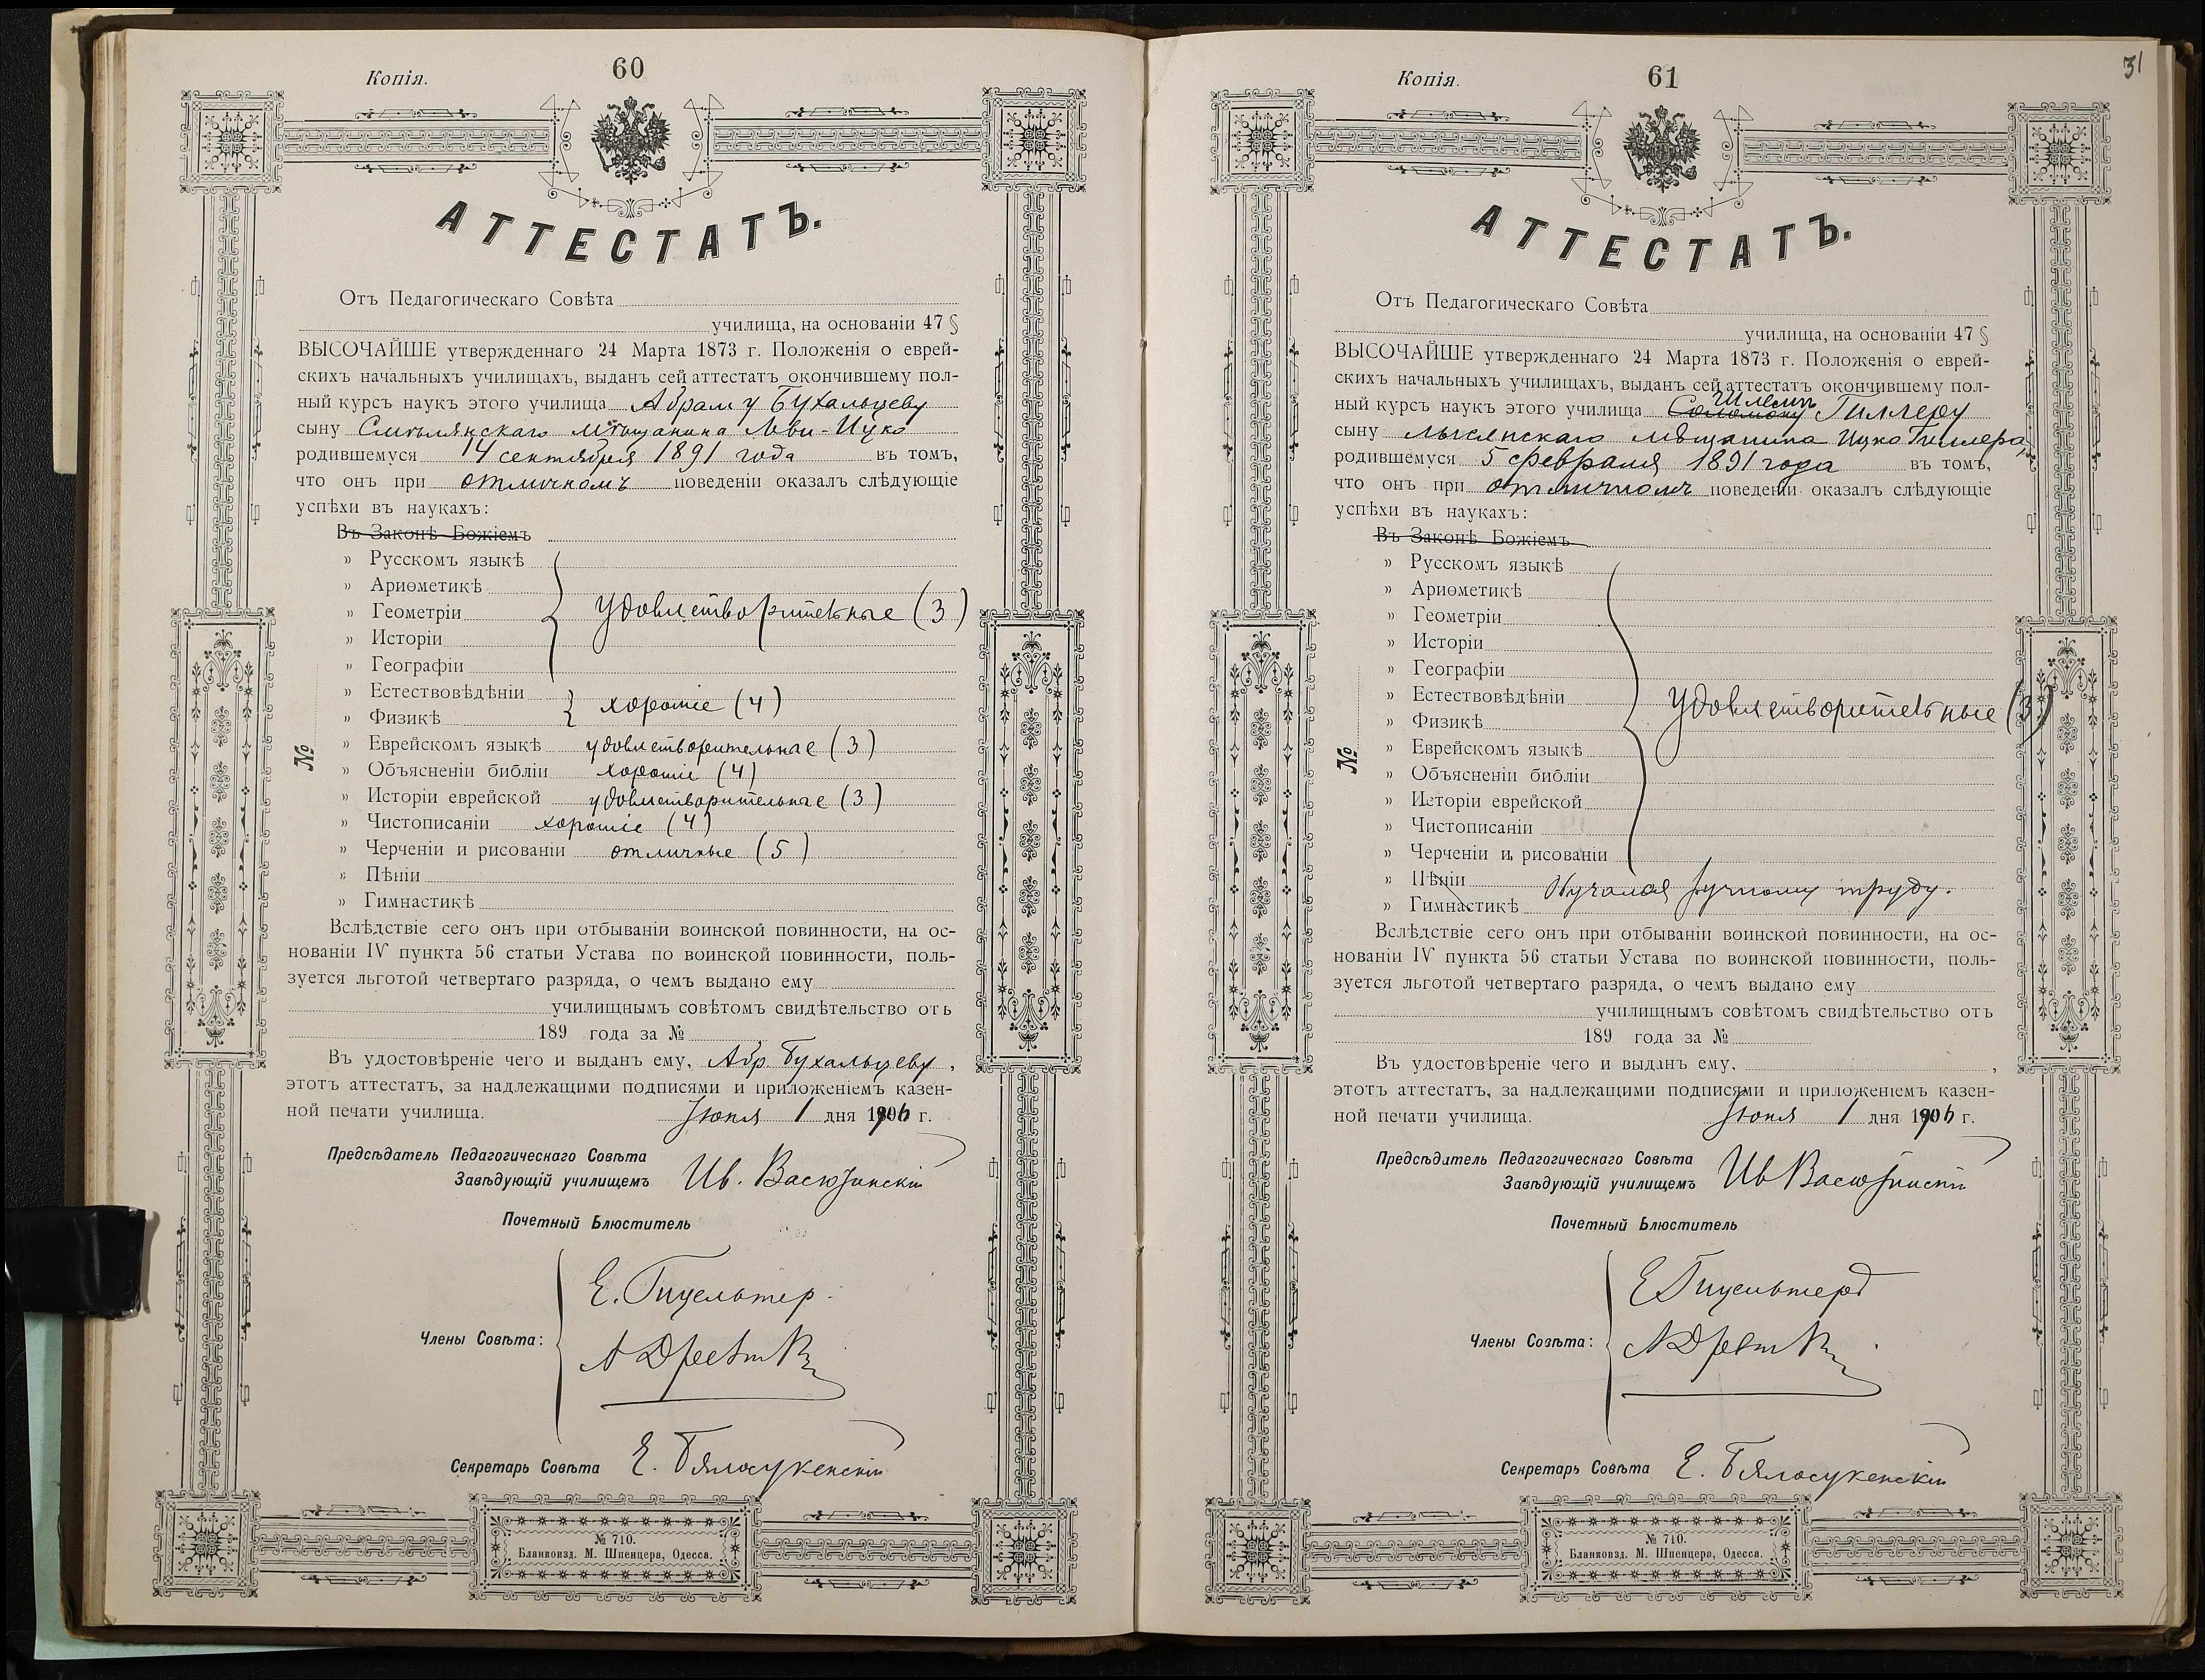 Копія.
60
АТТЕСТАТЪ.
Отъ Педагогическаго Совѣта
училища, на основаніи 47 §
ВЫСОЧАЙШЕ утвержденнаго 24 Марта 1873 г. Положенія о еврей-
скихъ начальныхъ училищахъ, выданъ сей аттестатъ окончившему пол-
ный курсъ наукъ этого училища Абраму Бухальцеву
сыну Смѣлянскаго мѣщанина Леви-Ицко
родившемуся 14 сентября 1891 года въ томъ,
что онъ при отличномъ поведеніи оказалъ слѣдующіе
успѣхи въ наукахъ:
Въ Законѣ Божіемъ
» Русскомъ языкѣ
» Ариѳметикѣ
» Геометріи удовлетворительные (3)
» Исторіи
» Географіи
» Естествовѣдѣніи хорошіе (4)
» Физикѣ
» Еврейскомъ языкѣ удовлетворительные (3)
» Объясненіи библіи хорошіе (4)
» Исторіи еврейской удовлетворительные (3)
» Чистописаніи хорошіе (4)
» Черченіи и рисованіи отличные (5)
» Пѣніи
» Гимнастикѣ
№
Вслѣдствіе сего онъ при отбываніи воинской повинности, на ос-
нованіи IV пункта 56 статьи Устава по воинской повинности, поль-
зуется льготой четвертаго разряда, о чемъ выдано ему
училищнымъ совѣтомъ свидѣтельство отъ
189 года за №
Въ удостовѣреніе чего и выданъ ему, Абр. Бухальцеву,
этотъ аттестатъ, за надлежащими подписями и приложеніемъ казен-
ной печати училища. Іюня 1 дня 1906 г.
Предсѣдатель Педагогическаго Совѣта
Завѣдующій училищемъ Ив. Васюзинскій
Почетный Блюститель
Е. Гицельтер
Члены Совѣта:
Секретарь Совѣта Е. Бялосукенскій
№ 710.
Бланкоизд. М. Шпенцера, Одесса.
Копія.
61
31
АТТЕСТАТЪ.
Отъ Педагогическаго Совѣта
училища, на основаніи 47 §
ВЫСОЧАЙШЕ утвержденнаго 24 Марта 1873 г. Положенія о еврей-
скихъ начальныхъ училищахъ, выданъ сей аттестатъ окончившему пол-
ный курсъ наукъ этого училища Соломону Гиллеру
сыну лысянскаго мѣщанина Ицко Гиллера,
родившемуся 5 февраля 1891 года въ томъ,
что онъ при отличномъ поведеніи оказалъ слѣдующіе
успѣхи въ наукахъ:
Въ Законѣ Божіемъ
» Русскомъ языкѣ
» Ариѳметикѣ
» Геометріи
» Исторіи
» Географіи
» Естествовѣдѣніи удовлетворительные (3)
» Физикѣ
» Еврейскомъ языкѣ
» Объясненіи библіи
» Исторіи еврейской
» Чистописаніи
» Черченіи и рисованіи
» Пѣніи Обучался ручному труду.
» Гимнастикѣ
№
Вслѣдствіе сего онъ при отбываніи воинской повинности, на ос-
нованіи IV пункта 56 статьи Устава по воинской повинности, поль-
зуется льготой четвертаго разряда, о чемъ выдано ему
училищнымъ совѣтомъ свидѣтельство отъ
189 года за №
Въ удостовѣреніе чего и выданъ ему, ,
этотъ аттестатъ, за надлежащими подписями и приложеніемъ казен-
ной печати училища. Іюня 1 дня 1906 г.
Предсѣдатель Педагогическаго Совѣта
Завѣдующій училищемъ Ив Васюзинскій
Почетный Блюститель
Е Гицельтеръ
Члены Совѣта:
Секретарь Совѣта Е. Бялосукенскій
№ 710.
Бланкоизд. М. Шпенцера, Одесса.